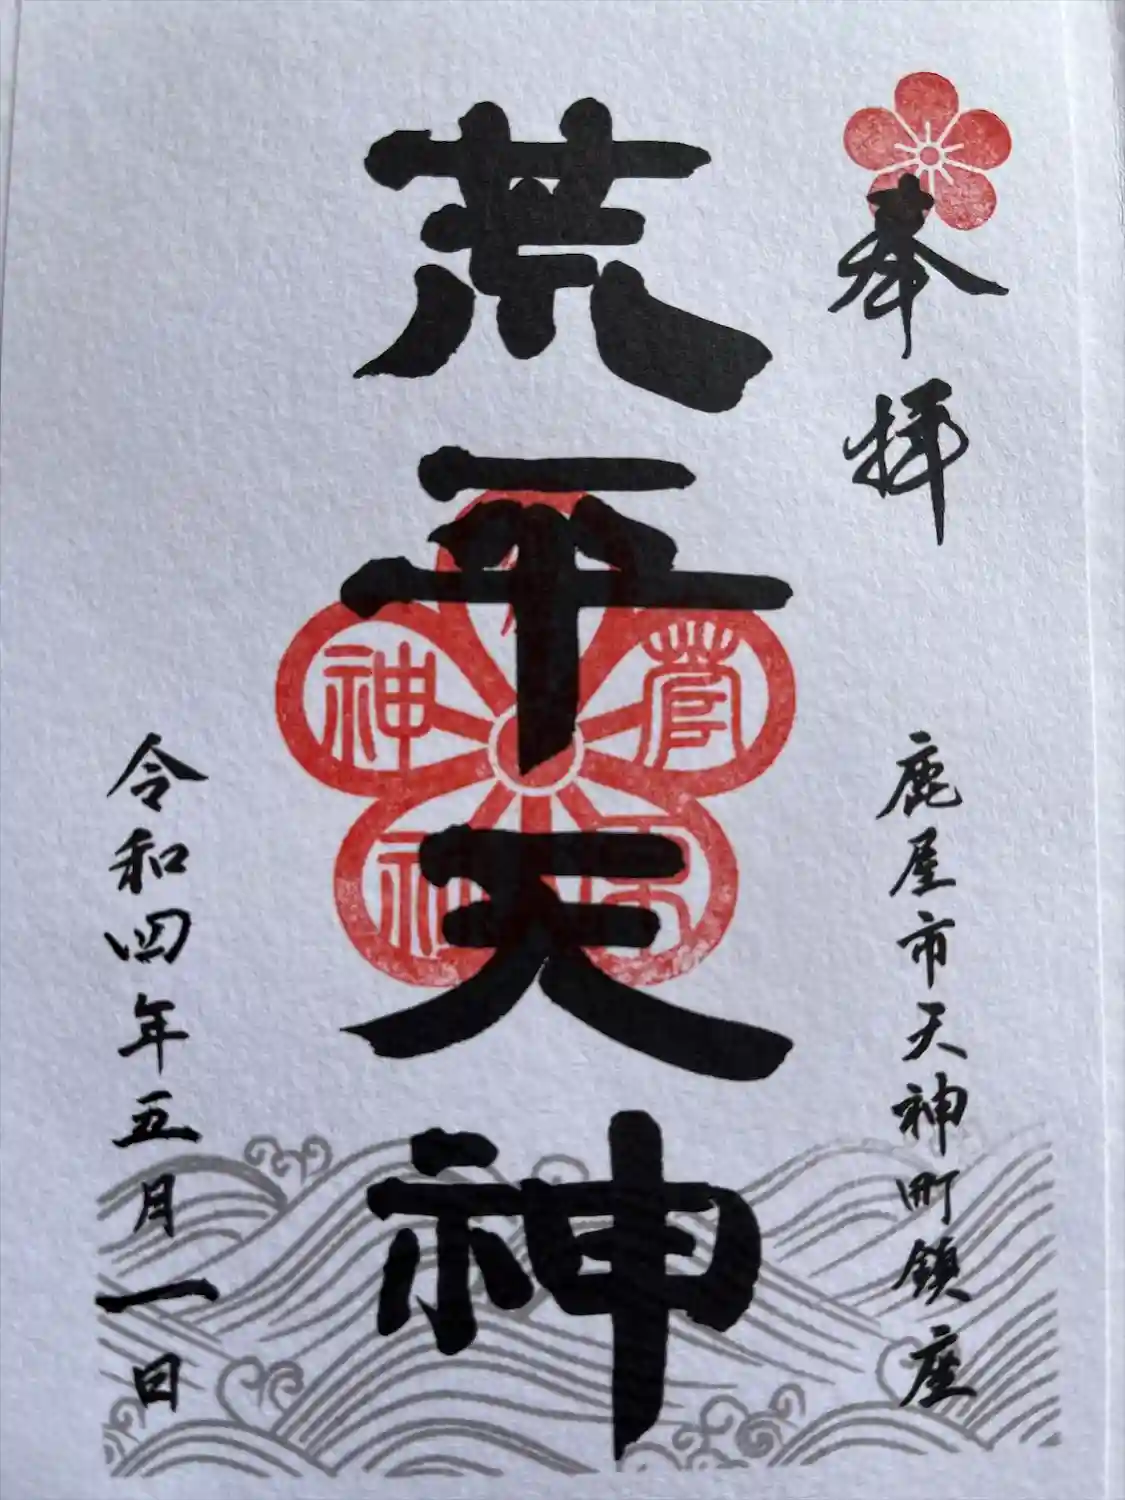 奉拝
鹿屋市天神町鎮座
荒平天神
令和四年五月一日
菅
神